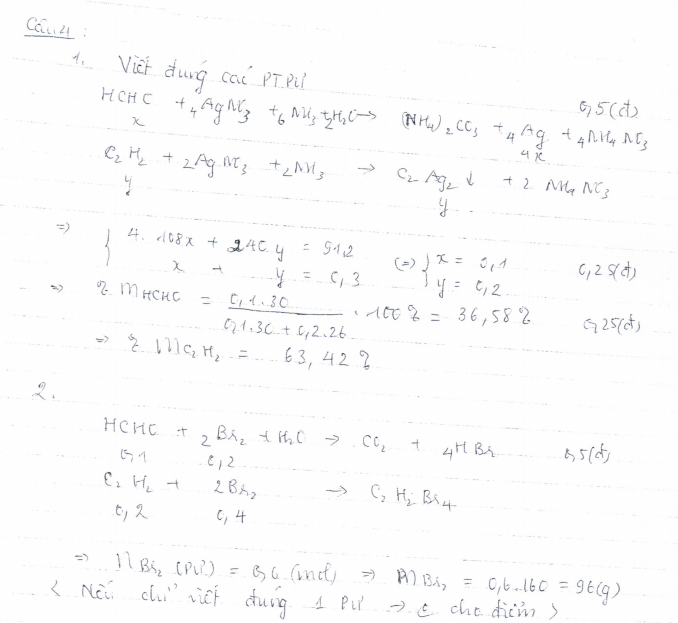 Câu 4 :
1. Viết đúng các PTPƯ
HCHO + 4AgNO3 + 6NH3 + 2H2O → (NH4)2CO3 + 4Ag + 4NH4NO3 0,5(đ)
x 4x
C2H2 + 2AgNO3 + 2NH3 → C2Ag2 ↓ + 2NH4NO3
y y
=> { 4.108x + 240y = 91,2 (=) { x = 0,1 0,25(đ)
x + y = 0,3 y = 0,2
=> % mHCHO = 0,1.30 / 0,1.30 + 0,2.26 . 100% = 36,58% 0,25(đ)
=> % mC2H2 = 63,42%
2.
HCHO + 2Br2 + H2O → CO2 + 4HBr 0,5(đ)
0,1 0,2
C2H2 + 2Br2 → C2H2Br4
0,2 0,4
=> nBr2 (PƯ) = 0,6 (mol) => mBr2 = 0,6.160 = 96(g)
< Nếu chỉ viết đúng 1 PƯ → 0 cho điểm >